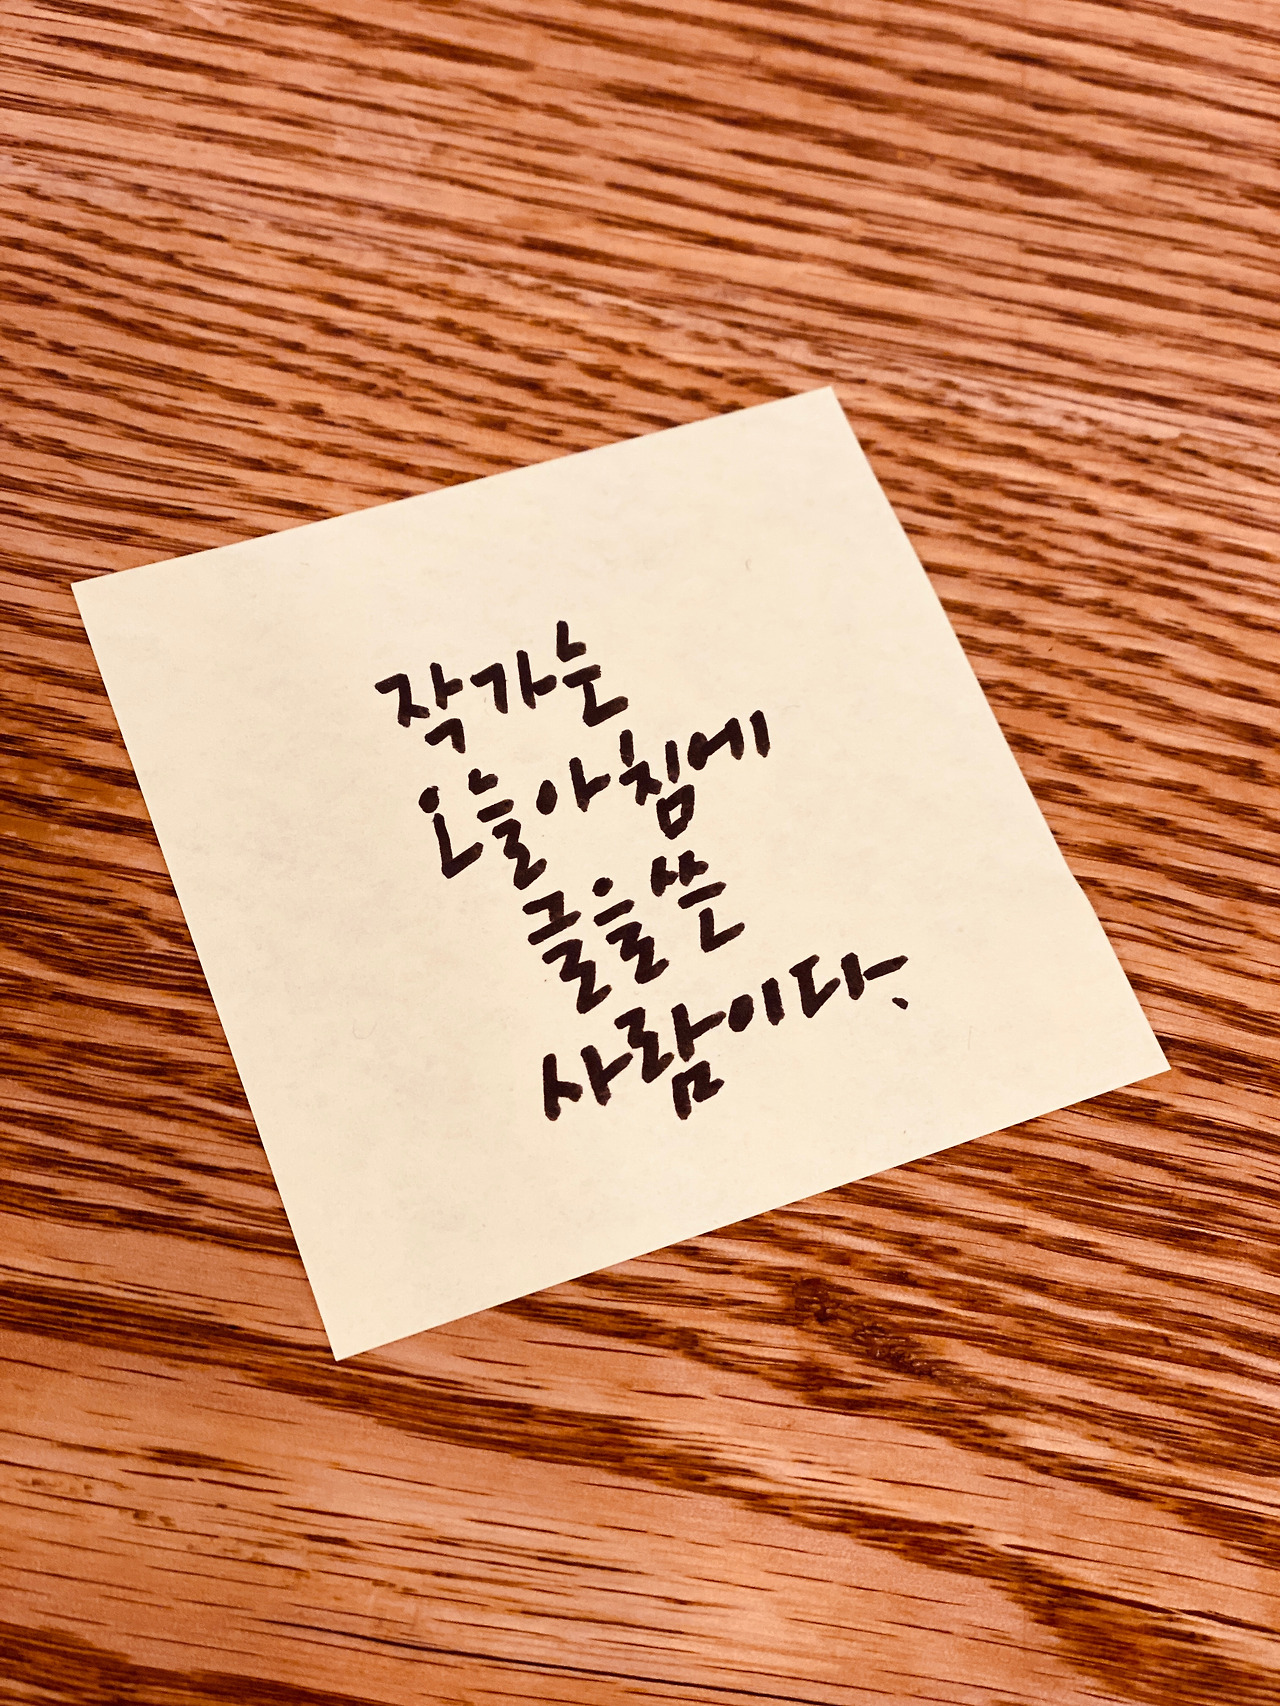 작가는
오늘아침에
글을쓴
사람이다.